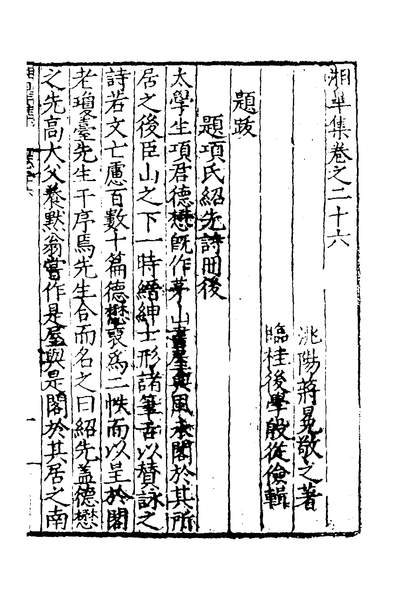 湘皐集卷之二十六
洮陽蔣冕敬之著
臨桂後學殷從儉輯
題跋
題項氏紹先詩冊後
太學生項君德懋旣作茅山書屋與風木閣於其所
居之後臣山之下一時縉紳士形諸筆舌以賛詠之
詩若文亡慮百數十篇德懋裒爲二帙而以呈於閣
老瓊臺先生干序焉先生合而名之曰紹先蓋德懋
之先高大父養默翁嘗作是屋與是閣於其居之南